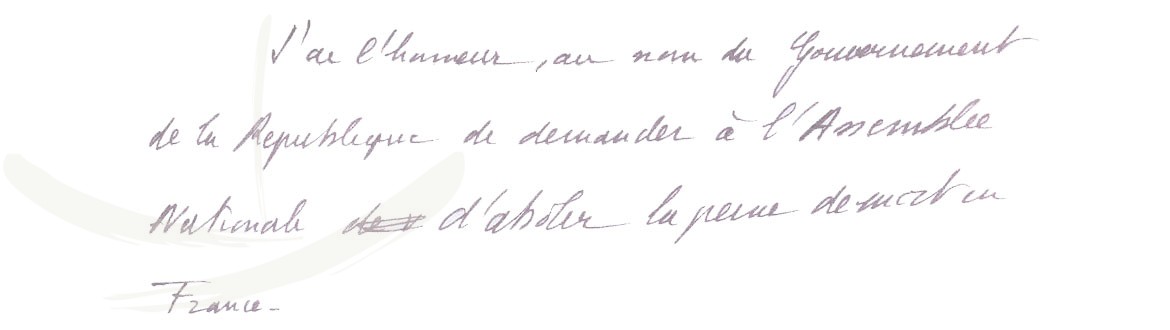 J'ai l'honneur, au nom du Gouvernement
de la République de demander à l'Assemblée
Nationale d'abolir la peine de mort en
France.